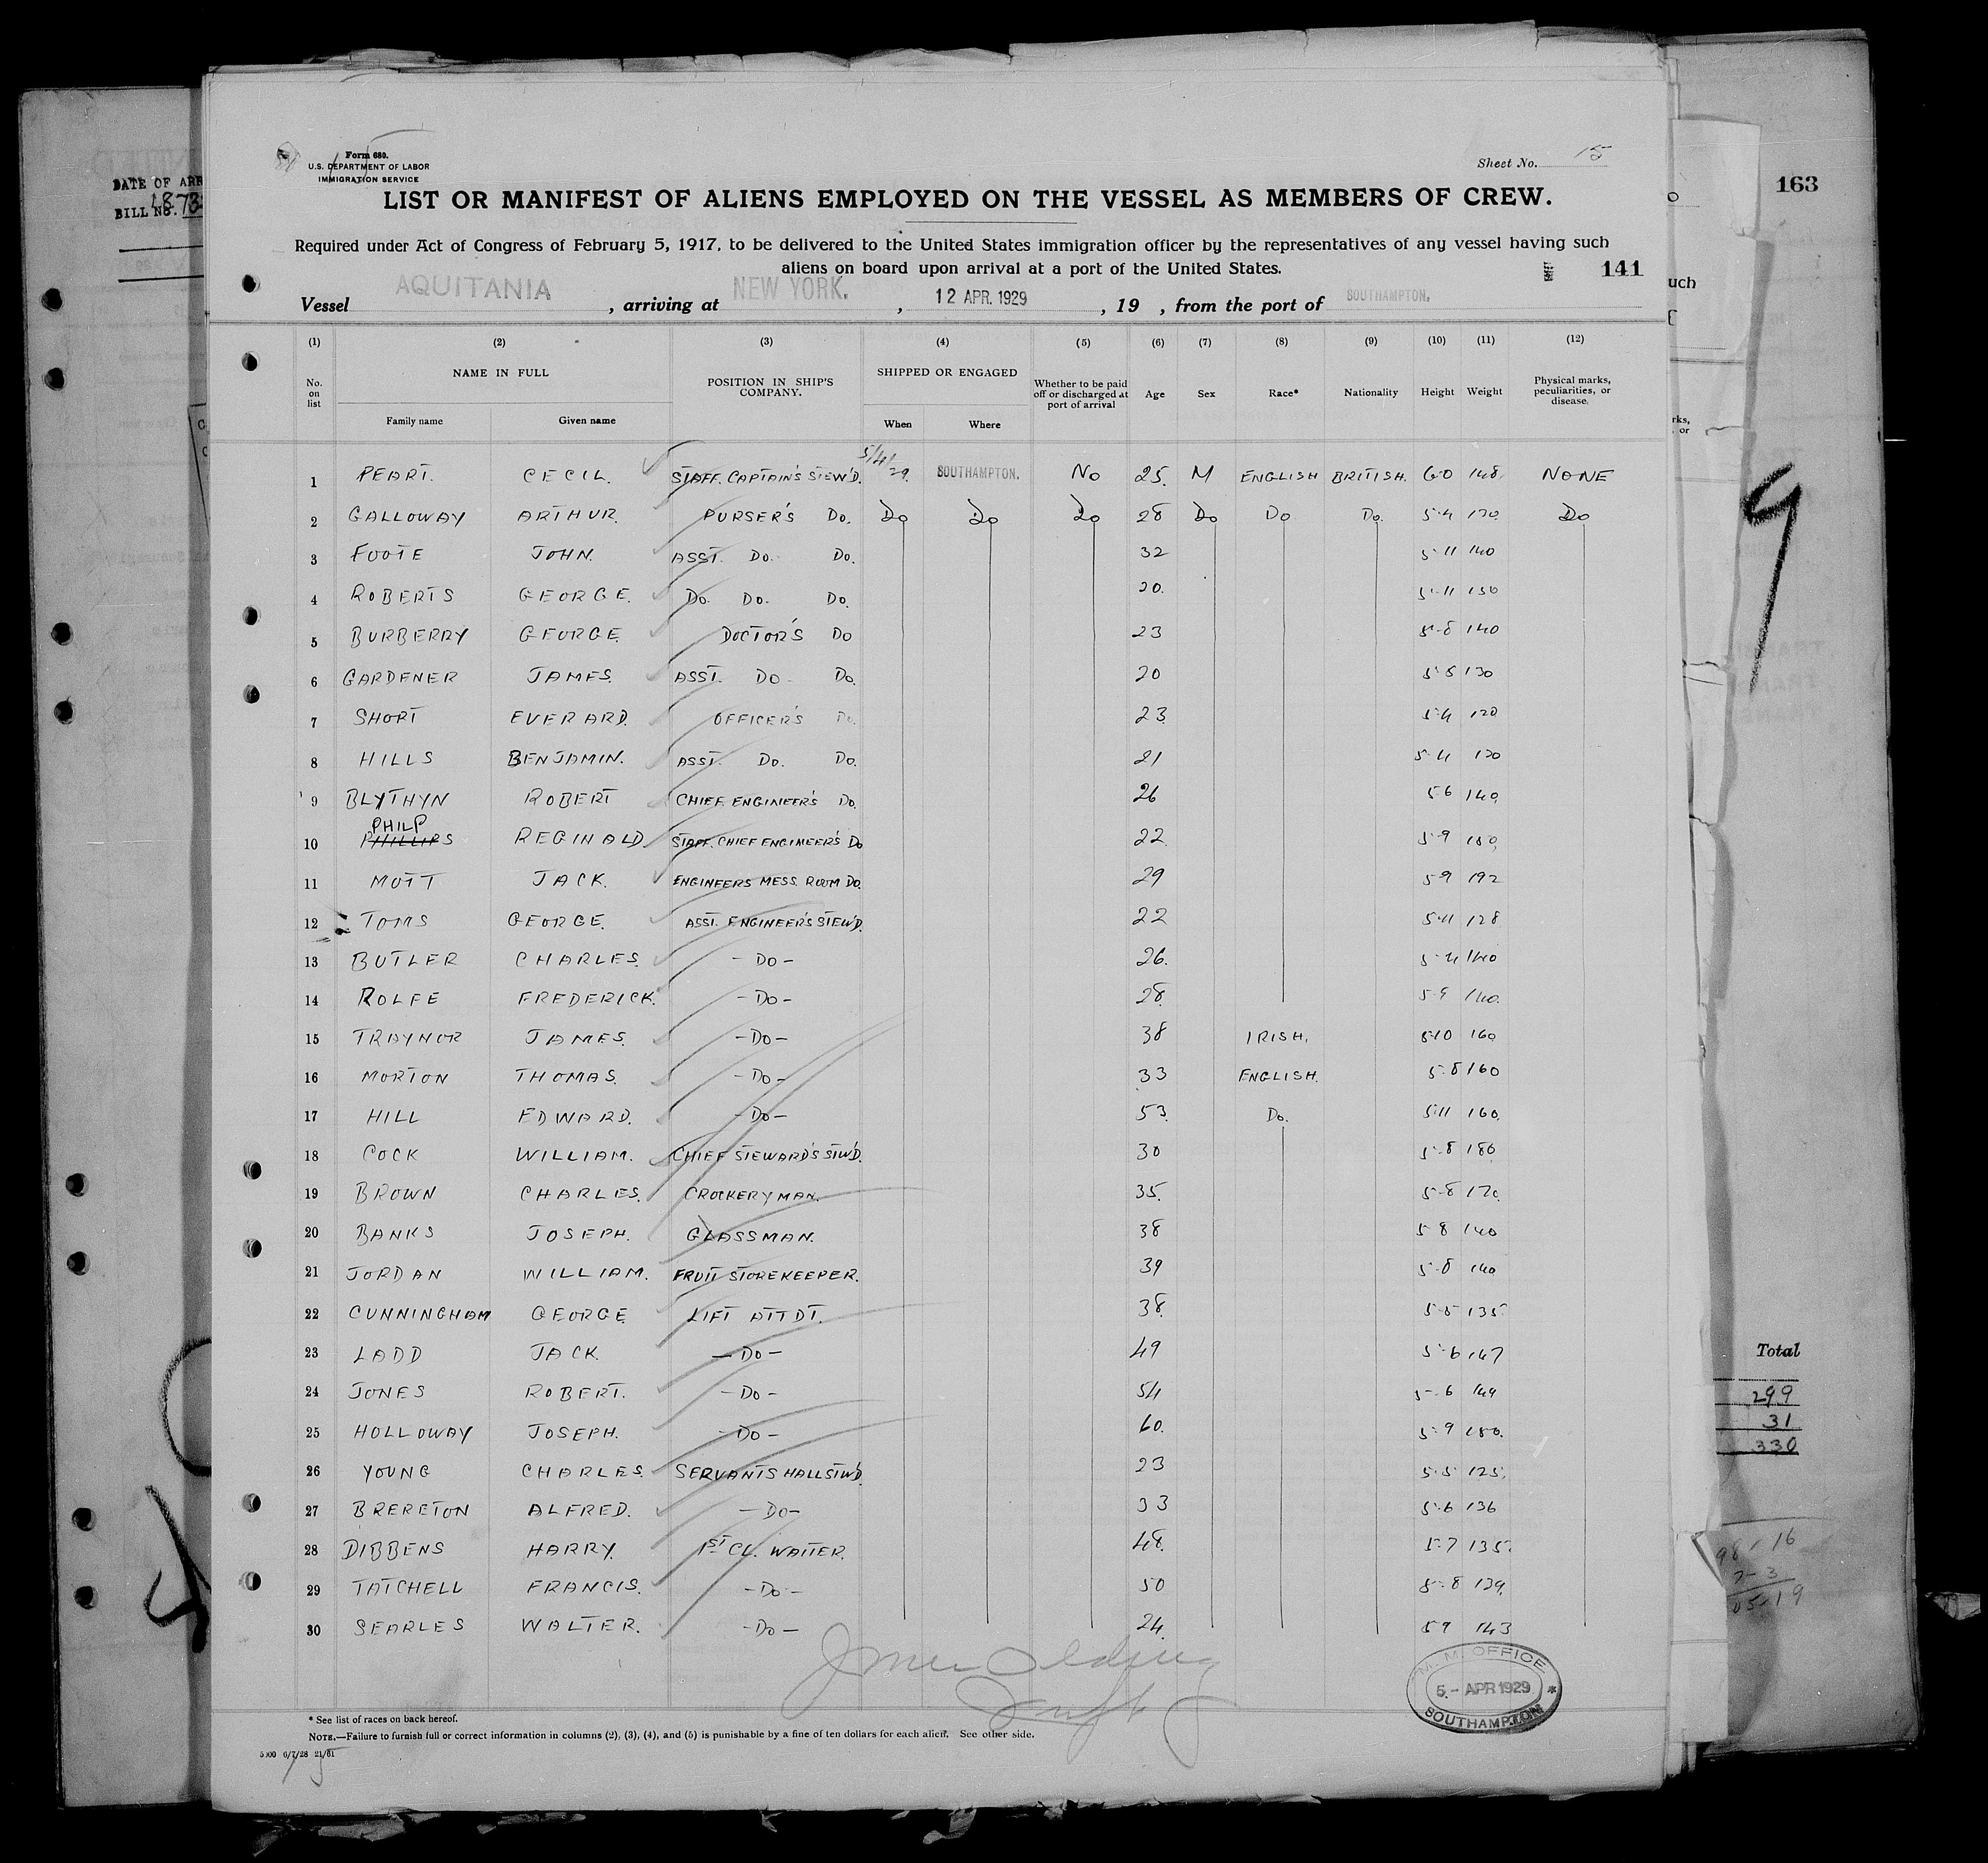 Form 680.
U.S. DEPARTMENT OF LABOR
IMMIGRATION SERVICE
Sheet No. 15
LIST OR MANIFEST OF ALIENS EMPLOYED ON THE VESSEL AS MEMBERS OF CREW.
Required under Act of Congress of February 5, 1917, to be delivered to the United States immigration officer by the representatives of any vessel having such
aliens on board upon arrival at a port of the United States.
141
Vessel AQUITANIA, arriving at NEW YORK., 12 APR. 1929, 19 , from the port of SOUTHAMPTON.
(1) (2) (3) (4) (5) (6) (7) (8) (9) (10) (11) (12)
No. on list NAME IN FULL POSITION IN SHIP'S COMPANY. SHIPPED OR ENGAGED Whether to be paid off or discharged at port of arrival Age Sex Race* Nationality Height Weight Physical marks, peculiarities, or disease.
Family name Given name When Where
1 PEART. CECIL. STAFF. CAPTAIN'S STEW'D. 5/4/29. SOUTHAMPTON. No 25. M ENGLISH BRITISH. 6-0 148. NONE
2 GALLOWAY ARTHUR. PURSER'S Do. Do Do Do 28 Do Do Do. 5-4 130. Do
3 FOOTE JOHN. ASST. Do. Do. 32 5-11 140
4 ROBERTS GEORGE. Do. Do. Do. 20. 5-11 150
5 BURBERRY GEORGE. DOCTOR'S Do 23 5-8 140
6 GARDENER JAMES. ASST. Do. Do. 20 5-5 130
7 SHORT EVERARD. OFFICER'S Do. 23. 5-4 120
8 HILLS BENJAMIN. ASST. Do. Do. 21 5-4 120
9 BLYTHYN ROBERT CHIEF ENGINEER'S Do. 26 5-6 140.
PHILP
10 PHILLIPS REGINALD. STAFF. CHIEF ENGINEER'S Do 22. 5-9 150.
11 MOTT JACK. ENGINEERS MESS. ROOM Do. 29 5-9 192
12 TOMS GEORGE. ASST. ENGINEER'S STEW'D. 22 5-11 128.
13 BUTLER CHARLES. -Do- 26. 5-4 140
14 ROLFE FREDERICK. -Do- 28. 5-9 140.
15 TRAYNOR JAMES. -Do- 38 IRISH. 5-10 160
16 MORTON THOMAS. -Do- 33 ENGLISH. 5-8 160
17 HILL EDWARD. -Do- 53. Do. 5-11 160.
18 COCK WILLIAM. CHIEF STEWARD'S STW'D. 30 5-8 180
19 BROWN CHARLES. CROCKERYMAN. 35. 5-8 170.
20 BANKS JOSEPH. GLASSMAN. 38 5-8 140
21 JORDAN WILLIAM. FRUIT STOREKEEPER. 39 5-8 140
22 CUNNINGHAM GEORGE LIFT ATTDT. 38. 5-5 135.
23 LADD JACK. -Do- 49 5-6 147
24 JONES ROBERT. -Do- 54 5-6 149
25 HOLLOWAY JOSEPH. -Do- 60. 5-9 150.
26 YOUNG CHARLES. SERVANTS HALL STW'D. 23 5-5 125.
27 BRERETON ALFRED. -Do- 33 5-6 136
28 DIBBENS HARRY. 1ST CL. WAITER. 48. 5-7 135.
29 TATCHELL FRANCIS. -Do- 50 5-8 139.
30 SEARLES WALTER. -Do- 24. 5-9 143
M. M. OFFICE
5 - APR 1929
SOUTHAMPTON
* See list of races on back hereof.
NOTE.—Failure to furnish full or correct information in columns (2), (3), (4), and (5) is punishable by a fine of ten dollars for each alien. See other side.
5000 6/7/28 21/61
DATE OF ARR
BILL No. 1873
163
uch
rks,
or
Total
299
31
330
98-16
7-3
05-19